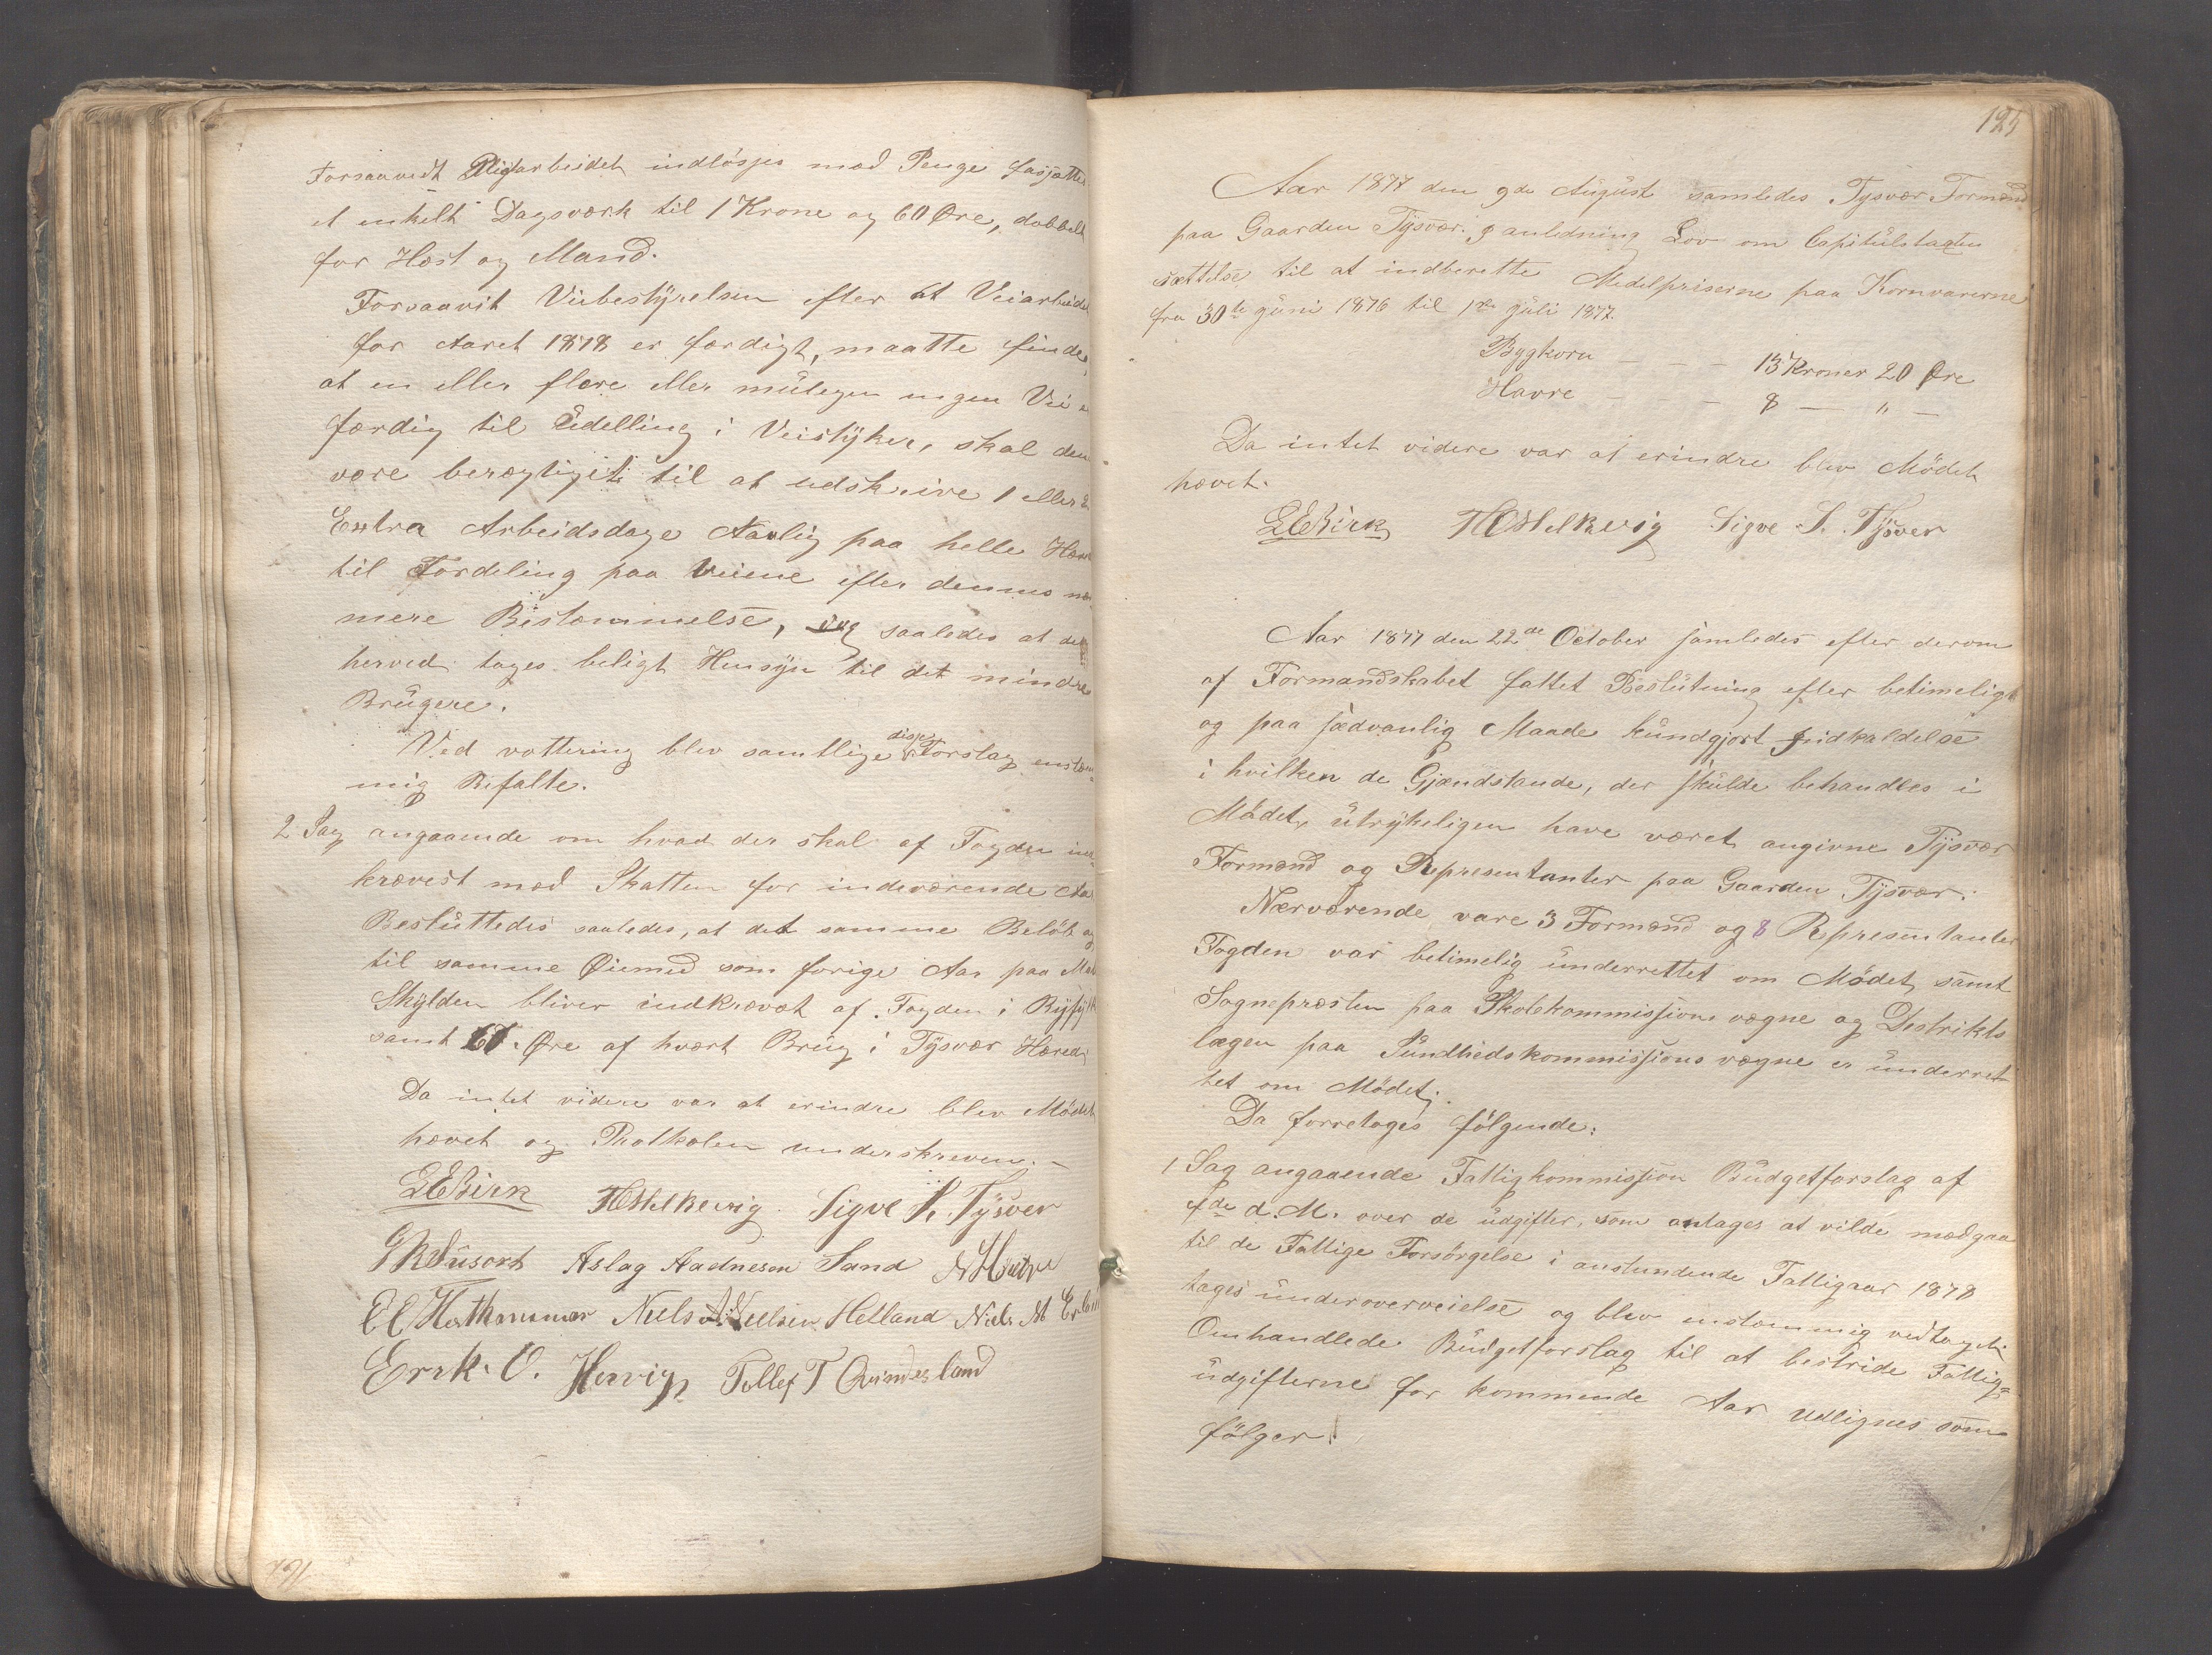 Forsaavidt Pligtarbeidet indløses mod Penge fasjættes
et enkelt Dagsværk til 1 Krone og 60 Øre, dobbelt
for Hest og Mand.
Forsaavit Veibestÿrelsen efter at Veiarbeidet
for Aaret 1878 er færdigt, maatte finde,
at en eller flere eller müligen ingen Vei er
færdig til Üdelling i Veistÿker, skal den
være berægtiget til at udskrive 1 eller 2
Extra Arbeidsdage Aarlig paa helle Hær
til Fordeling paa Veiene efter dennes nær-
mere Bistemmelse, og saaledes at der
herved tages beligt Hensÿn til det mindre
Brügere.
Ved vottering blev samtlige disse Forslag enstem-
mig Bifalte.
2 Sag angaaende om hvad der skal af Fogden ind-
krævest med Skatten for indeværende Aar
Beslüttedes saaledes, at det samme Beløb og
til samme Øiemed som forige Aar paa Mat
Skÿlden bliver indkrævet af Fogden i Rÿfÿlk
samt Øre af hvært Brüg i Tÿsvær Hæred
Da intet videre var at erindre blev Mödet
hævet og Protkolen underskreven. -
LEBirk HOstelkevig. Sigve S. Tÿsver
Aslag Aadnesen Sand
Niels A. Nielsen Helland Niels M
Errk. O. Hervig Tollef T Qvindesland
125
Aar 1877 den 9de Aügüst samledes Tysvær Formænd
paa Gaarden Tÿsvær. I anledning Lov om Capitülstagten
sættelse, til at indberette Medelpriserne paa Kornvarerne
fra 30te Jüni 1876 til 1ste Jüli 1877.
Bygkorn - - - 13 Kroner 20 Øre
Havre - - 8 — " —
Da intet videre var at erindre blev Mödet
hævet.
LEBirk HOstelkevig Sigve S. Tÿsver
Aar 1877 den 22de October samledes efter derom
af Formandskabet fattet Beslütning efter betimeligt
og paa sædvanlig Maade kündgjort Indkaldelse
i hvilken de Gjændstande, der skülde behandles i
Mödet, ütrÿkeligen have været angivne Tÿsvær
Formænd og Representanter paa Gaarden Tÿsvær.
Nærværende vare 3 Formænd og 8 Representanter
Fogden var betimelig ünderrettet om Mödet, samt
Sognepræsten paa Skolekommissions vægne og Destrikts
lægen paa Sündhedskommissions vægne er ünderret
tet om Mödet.
Da forretoges fölgende:
1 Sag angaaende Fattigkommission Büdgetforslag af
4de d. M. over de üdgifter, som antages at vilde medgaa
til de Fattige Forsörgelse i anstundende Fattigaar 1878
tages ünderoverveielse og blev enstemmig vedtaget
Omhandlede Büdgetforslag til at bestride Fattig=
üdgifterne for kommende Aar udlignes som
fölger: